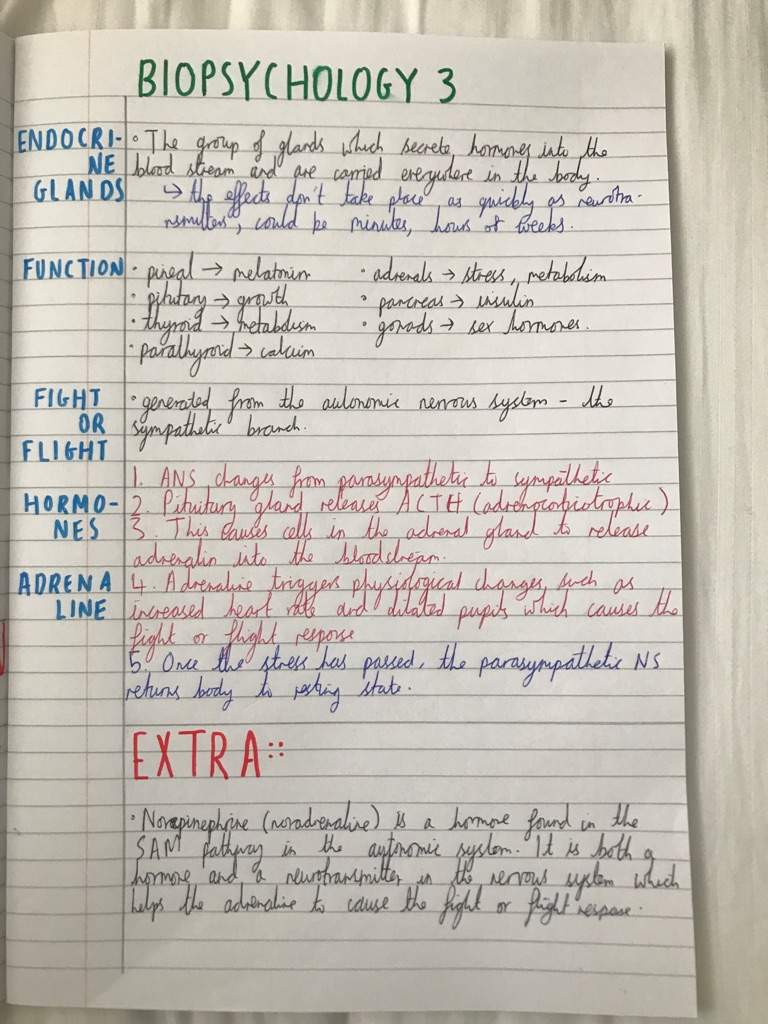 BIOPSYCHOLOGY 3
ENDOCRI-
NE
GLANDS
• The group of glands which secrete hormones into the
blood stream and are carried everywhere in the body.
↳ the effects don't take place as quickly as neurotra-
nsmitters, could be minutes, hours or weeks.
FUNCTION
• pineal → melatonin
• pituitary → growth
• thyroid → metabolism
• parathyroid → calcium
• adrenals → stress, metabolism
• pancreas → insulin
• gonads → sex hormones.
FIGHT
OR
FLIGHT
• generated from the autonomic nervous system - the
sympathetic branch.
HORMO-
NES
1. ANS changes from parasympathetic to sympathetic
2. Pituitary gland releases ACTH (adrenocortiotrophic)
3. This causes cells in the adrenal gland to release
adrenalin into the bloodstream.
ADRENA
LINE
4. Adrenaline triggers physiological changes, such as
increased heart rate and dilated pupils which causes the
fight or flight response
5. Once the stress has passed, the parasympathetic NS
returns body to resting state.
EXTRA::
• Norepinephrine (noradrenaline) is a hormone found in the
SAM pathway in the autonomic system. It is both a
hormone and a neurotransmitter in the nervous system which
helps the adrenaline to cause the fight or flight response.